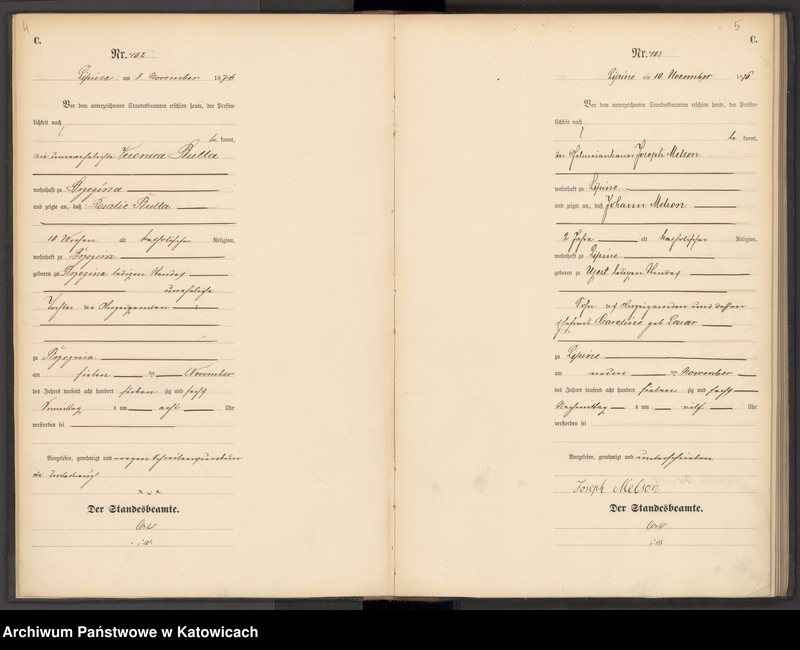 4
C.
Nr. 102
Lipine am 8 November 1876
Vor dem unterzeichneten Standesbeamten erschien heute, der Persön-
lichkeit nach
be kannt,
die unverehelichte Veronica Bulla
wohnhaft zu
und zeigte an, daß Rosalie Bulla
10 Wochen alt katholischer Religion,
wohnhaft zu
geboren zu ledigen Standes
uneheliche
Tochter der Anzeigenden
zu
am sieben ten November
des Jahres tausend acht hundert sieben zig und sechs
Vormittag s um acht Uhr
verstorben sei
Vorgelesen, genehmigt und wegen
xxx
Der Standesbeamte.
5
C.
Nr. 103
Lipine am 10 November 1876
Vor dem unterzeichneten Standesbeamten erschien heute, der Persön-
lichkeit nach
be kannt,
der Joseph Melson
wohnhaft zu Lipine
und zeigte an, daß Johann Melson
2 Jahre alt katholischer Religion,
wohnhaft zu Lipine
geboren zu ledigen Standes
Sohn des Anzeigenden und dessen
Ehefrau Caroline geb Lasar
zu Lipine
am neun ten November
des Jahres tausend acht hundert sieben zig und sechs
Nachmittag s um elf Uhr
verstorben sei
Vorgelesen, genehmigt und unterschrieben
Joseph Melson
Der Standesbeamte.
Archiwum Państwowe w Katowicach